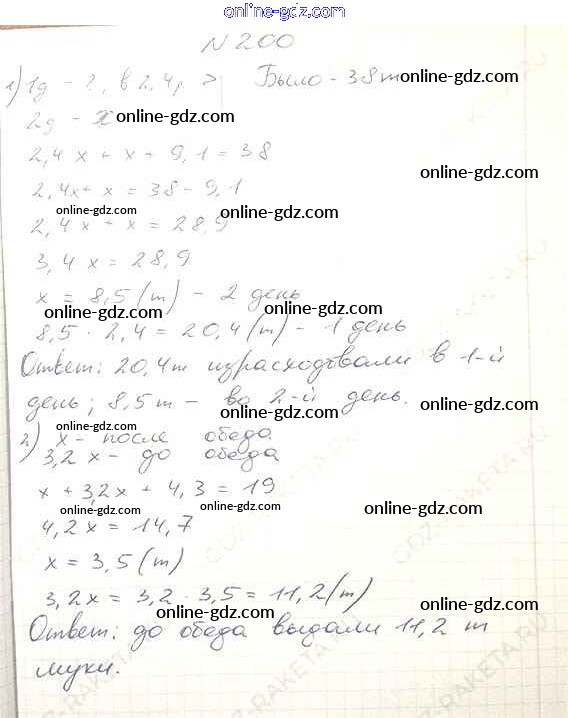 www.online-gdz.com
N 200
1) 1д - ?, в 2,4 р > Было - 38 т
online-gdz.com
2д - х online-gdz.com
2,4 х + х + 9,1 = 38
online-gdz.com
2,4х + х = 38 - 9,1
online-gdz.com online-gdz.com
2,4 х + х = 28,9
3,4 х = 28,9
online-gdz.com
х = 8,5 (т) - 2 день
online-gdz.com online-gdz.com
8,5 · 2,4 = 20,4 (т) - 1 день
Ответ: 20,4 т израсходовали в 1-й
день; 8,5 т - во 2-й день.
online-gdz.com online-gdz.com
2) х - после обеда
online-gdz.com online-gdz.com
3,2 х - до обеда
х + 3,2х + 4,3 = 19
online-gdz.com online-gdz.com online-gdz.com
4,2х = 14,7
х = 3,5 (т)
3,2х = 3,2 · 3,5 = 11,2 (т)
online-gdz.com online-gdz.com online-gdz.com
Ответ: до обеда выдали 11,2 т
муки.
GDZ-RAKETA.RU